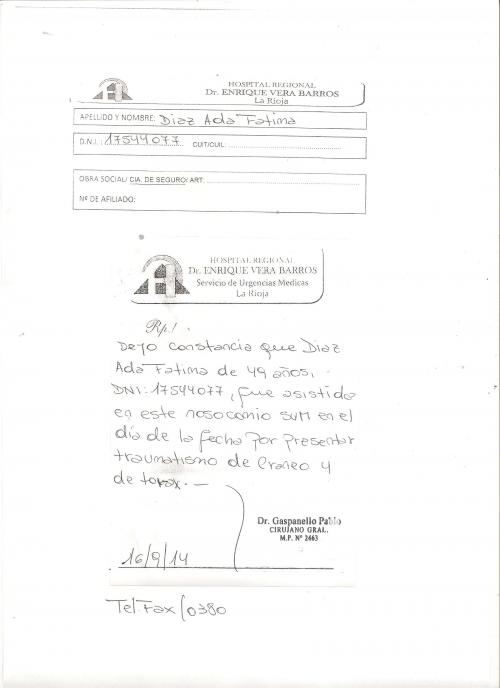 HOSPITAL REGIONAL
Dr. ENRIQUE VERA BARROS
La Rioja
APELLIDO Y NOMBRE: Diaz Ada Fatima
D.N.I. : 17544077 CUIT/CUIL:
OBRA SOCIAL/ CIA. DE SEGURO/ ART:
Nº DE AFILIADO:
HOSPITAL REGIONAL
Dr. ENRIQUE VERA BARROS
Servicio de Urgencias Medicas
La Rioja
Rp./
Dejo constancia que Diaz
Ada Fatima de 49 años,
DNI: 17544077, fue asistida
en este nosocomio SUM en el
día de la fecha por presentar
traumatismo de Craneo y
de torax. —
Dr. Gaspanello Pablo
CIRUJANO GRAL.
M.P. Nº 2463
16/9/14
Tel.Fax/0380